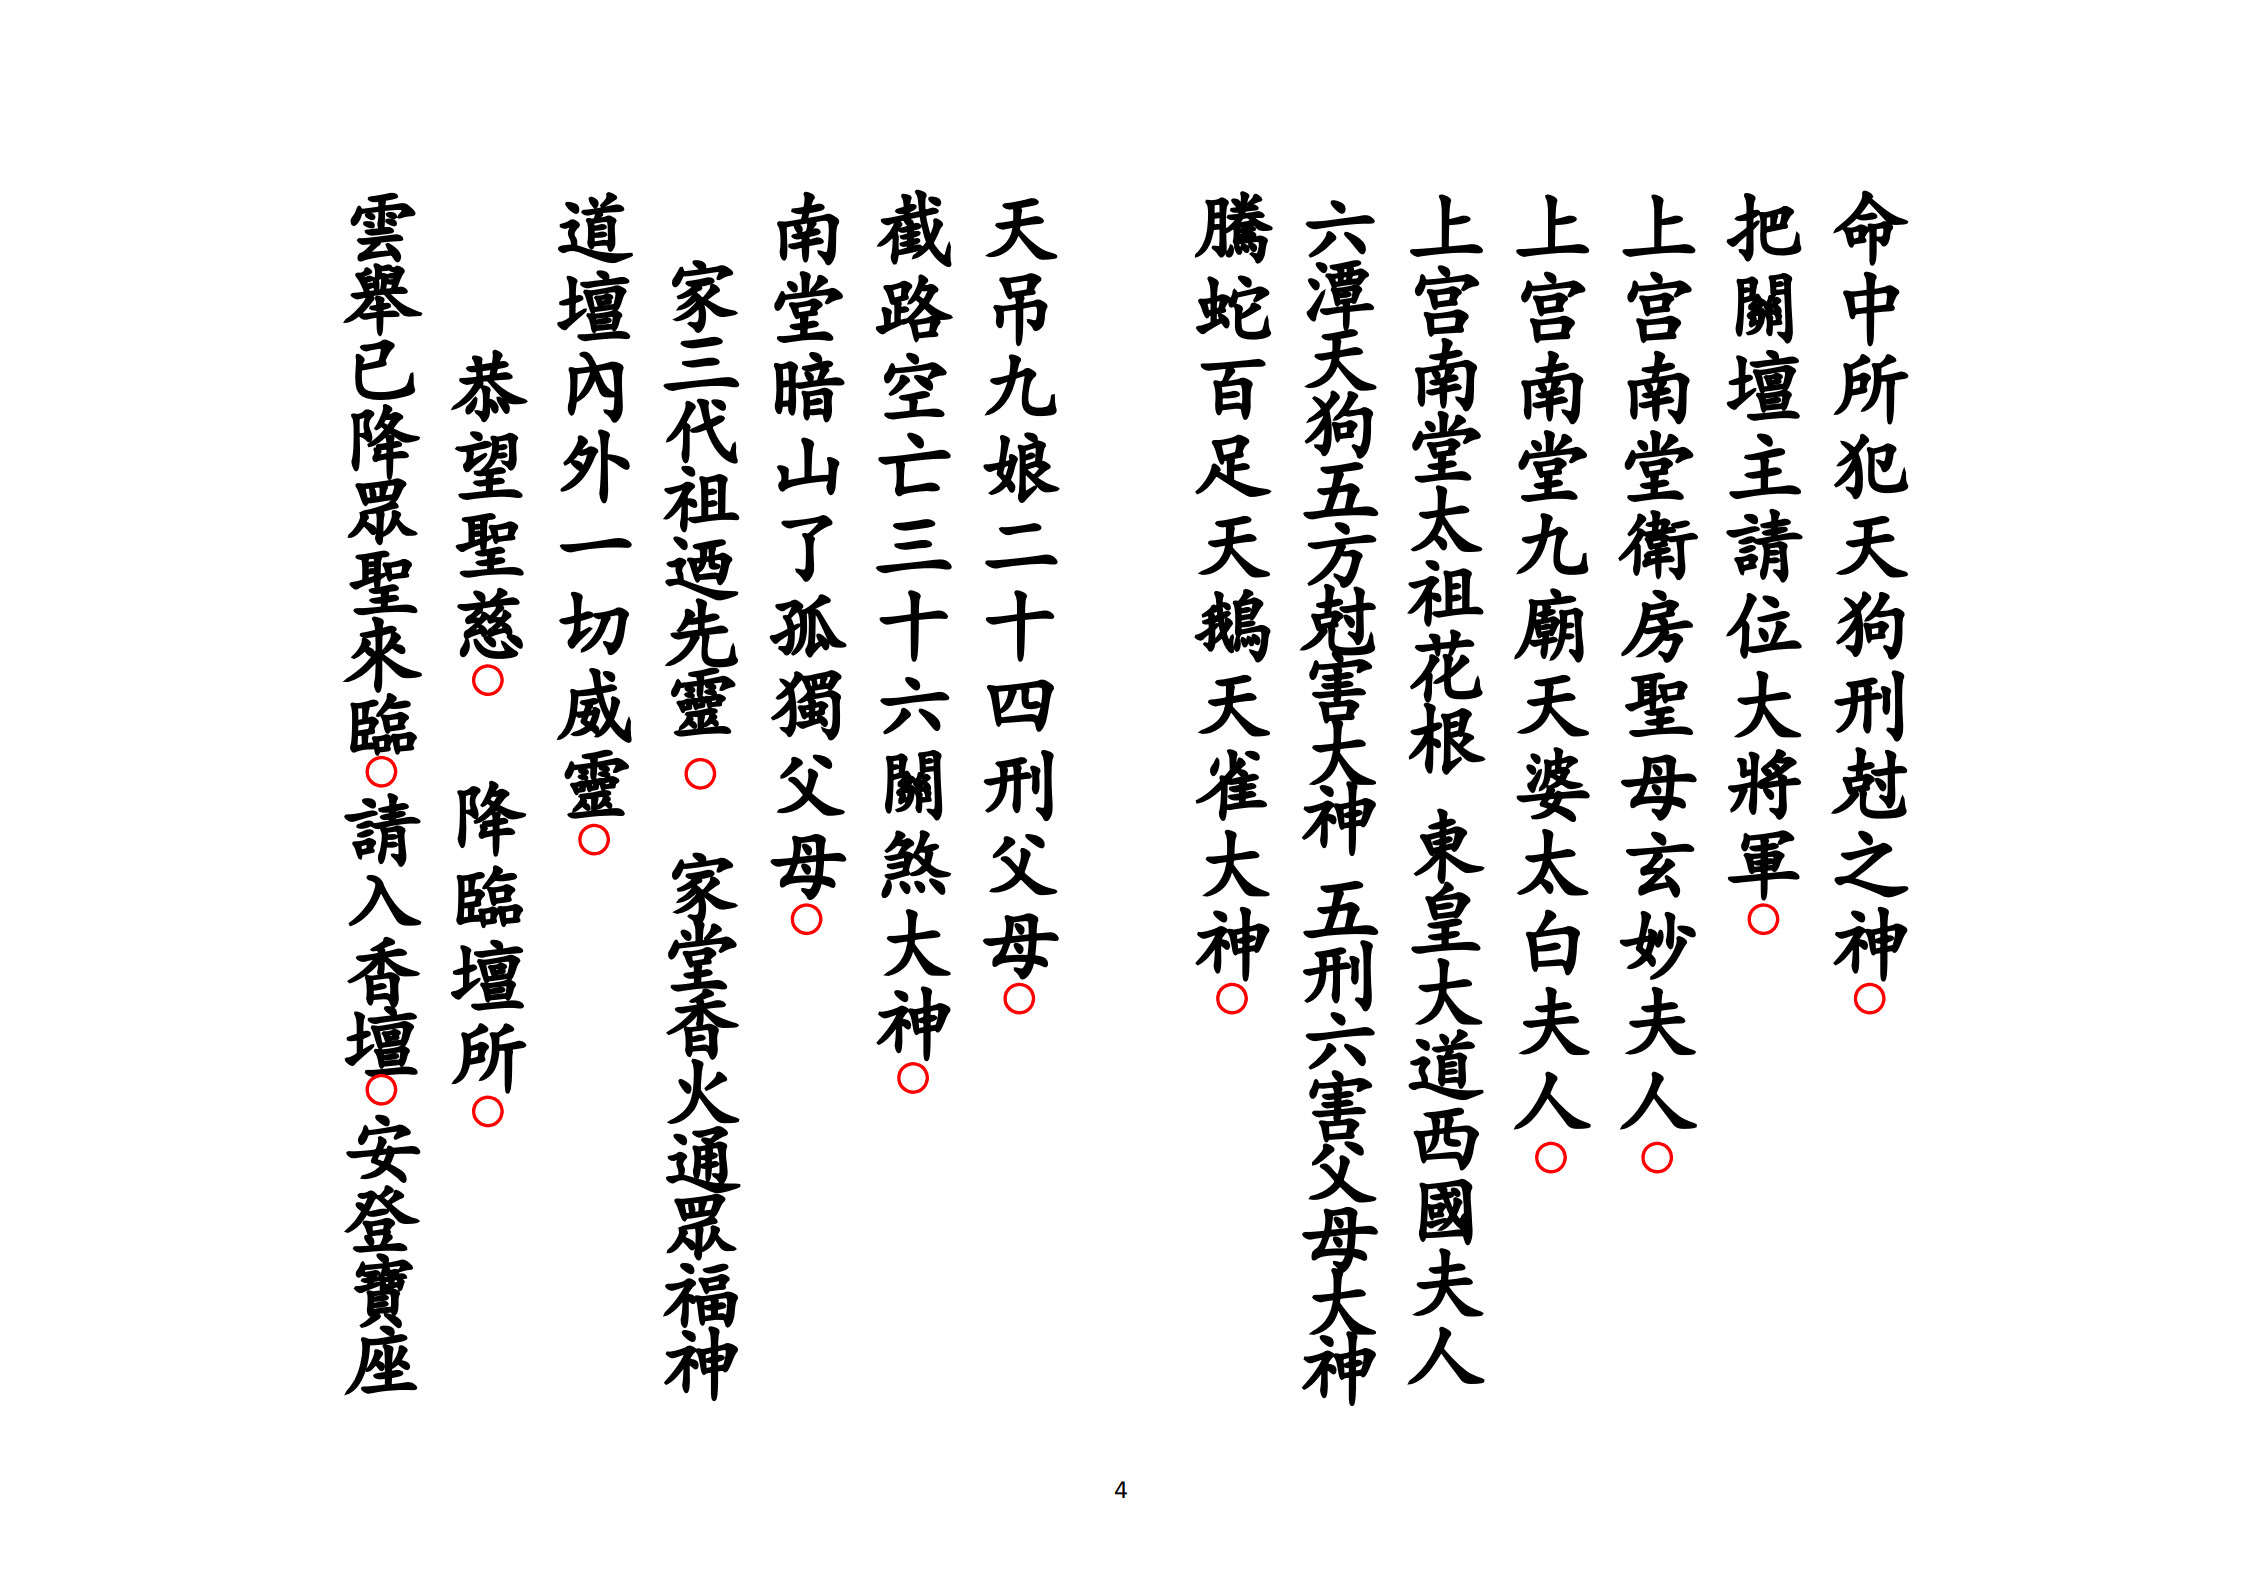 命中所犯天狗刑尅之神○
把關壇主請位大將軍○
上宮南堂衛房聖母玄妙夫人○
上宮南堂九廟天婆太白夫人○
上宮南堂太祖花根　東皇大道西國夫人
六潭天狗五方尅害大神　五刑六害父母大神
騰蛇百足天鵝天雀大神○
天吊九娘二十四刑父母○
截路空亡三十六關煞大神○
南堂暗山了孤獨父母○
家三代祖迺先靈○　家堂香火通眾福神
道壇內外一切威靈○
恭望聖慈○　降臨壇所○
雲舉已降眾聖來臨○請入香壇○安登寶座
4